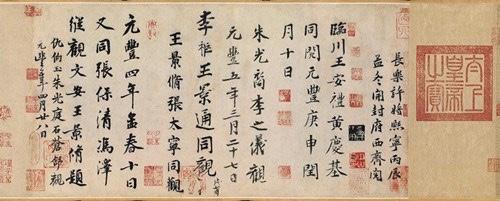 太上皇帝之寶
長樂許將熙寧丙辰
孟冬開封府西齋閱
臨川王安禮黃慶基
同閱元豐庚申閏
月十日
朱光裔李之儀觀
元豐五年三月二十七日
李 王景通同觀
王景脩張太寧同觀
元豐四年孟春十日
又同張保清馮澤
縱觀文安王景脩題
仇伯玉朱光庭石蒼舒觀
元豐 年四月廿八日